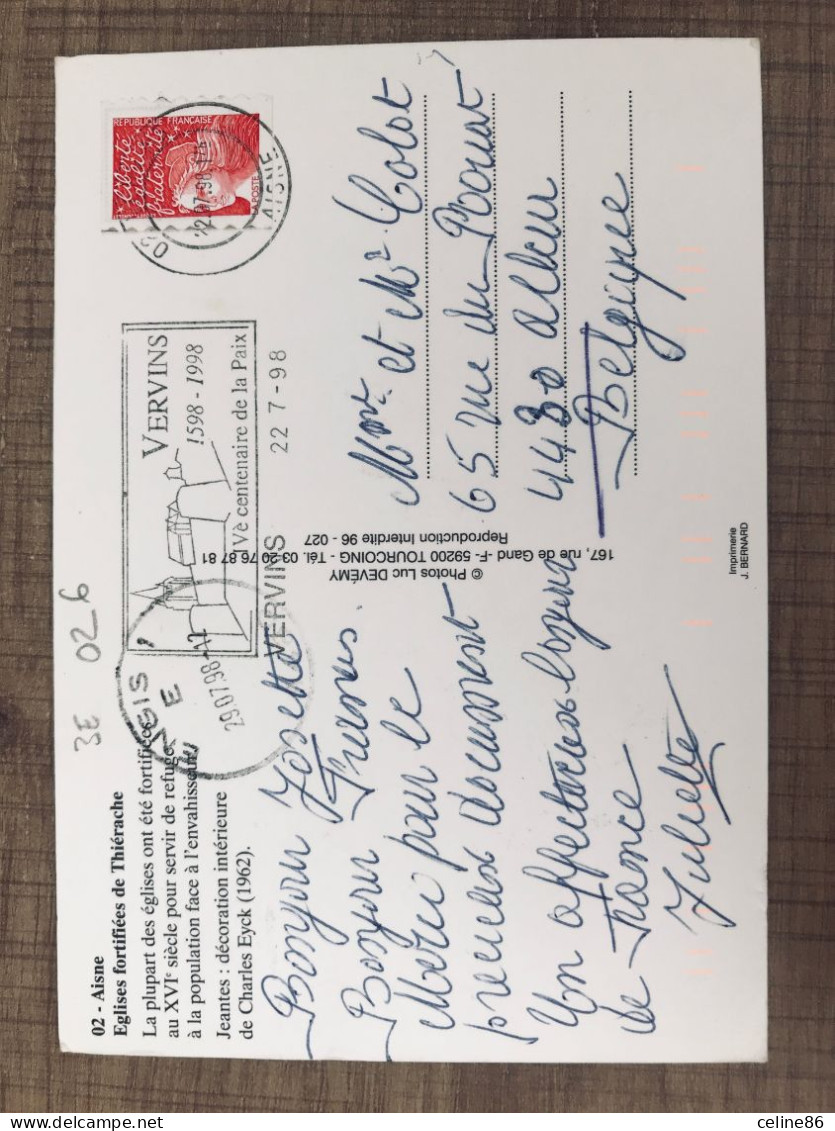 02 - Aisne
Eglises fortifiées de Thiérache
La plupart des églises ont été fortifiées
au XVIe siècle pour servir de refuge
à la population face à l'envahisseur.
Jeantes : décoration intérieure
de Charles Eyck (1962).
3E 026
29.07.98
VERVINS
1598 - 1998
IVè centenaire de la Paix
VERVINS 22 7-98
RÉPUBLIQUE FRANÇAISE
Liberté
égalité
fraternité
LA POSTE
22.07.98
02 AISNE
Bonjour Josette
Bonjour Francis.
Merci pour le
précieux document
Un affectueux bonjour
de France
Juliette
© Photos Luc DEVÉMY
167, rue de Gand -F- 59200 TOURCOING - Tél. 03 20 76 87 81
Reproduction Interdite 96 - 027
Mme et Mr Colot
65 rue du
4430 Alleur
Belgique
Imprimerie
J. BERNARD
celine86